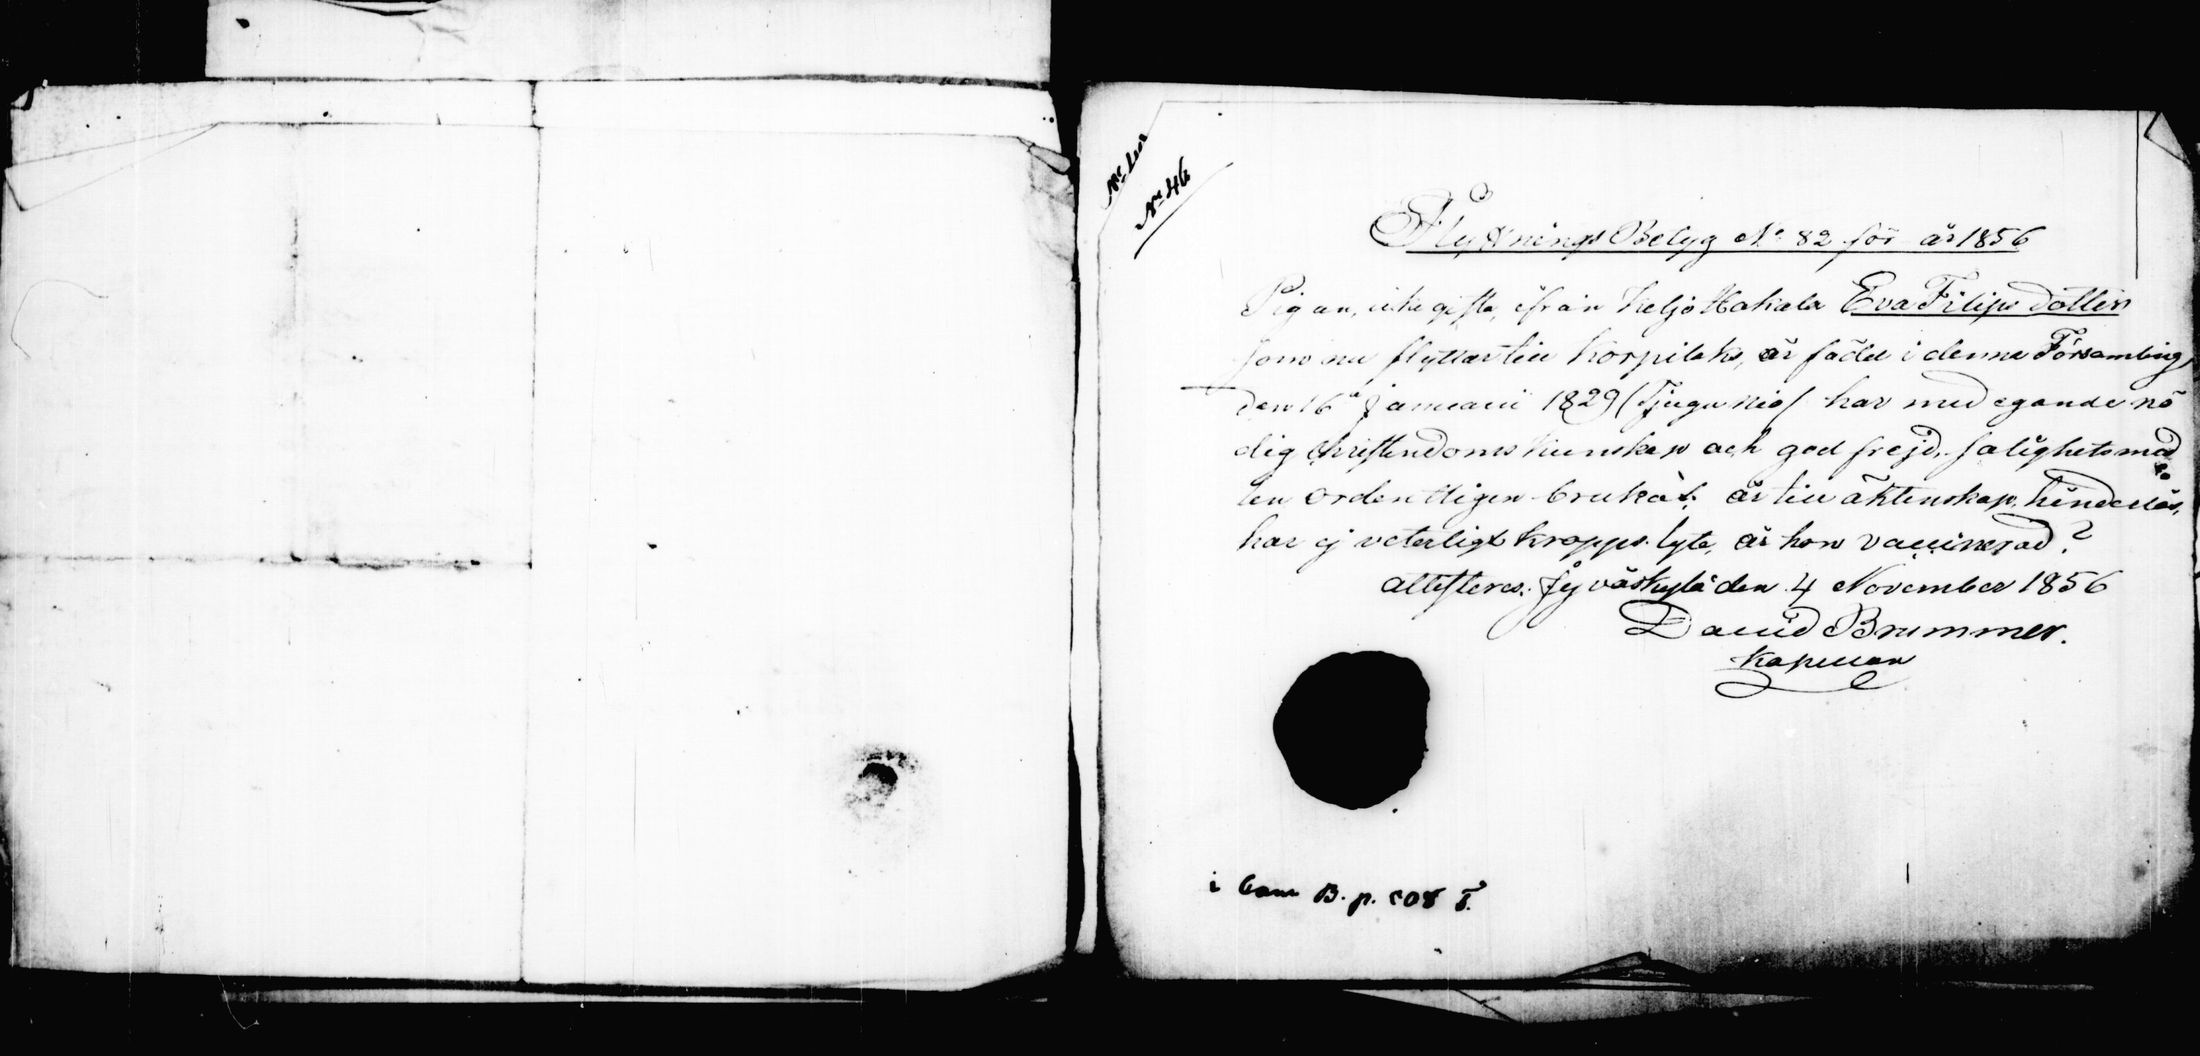 No 46
Flyttnings Betyg No 82 för år 1856
Pigan, icke gifta, ifrån Keljo Hakala Eva Filips dotter
som nu flyttar till Korpilaks, är född i denna Församling
den 16 Januarii 1829 (Tjugu nio) har med egande nö
dig Christendoms kunskap och god frejd, salighetsmed
len ordentligen brukat, är till äktenskap hinderlös,
har ej veterligt kropps lyte, är hon vaccinerad?
attesteres. Jyväskylä den 4 November 1856
David Brummer.
Kapellan
i Com B. p. 508 T.